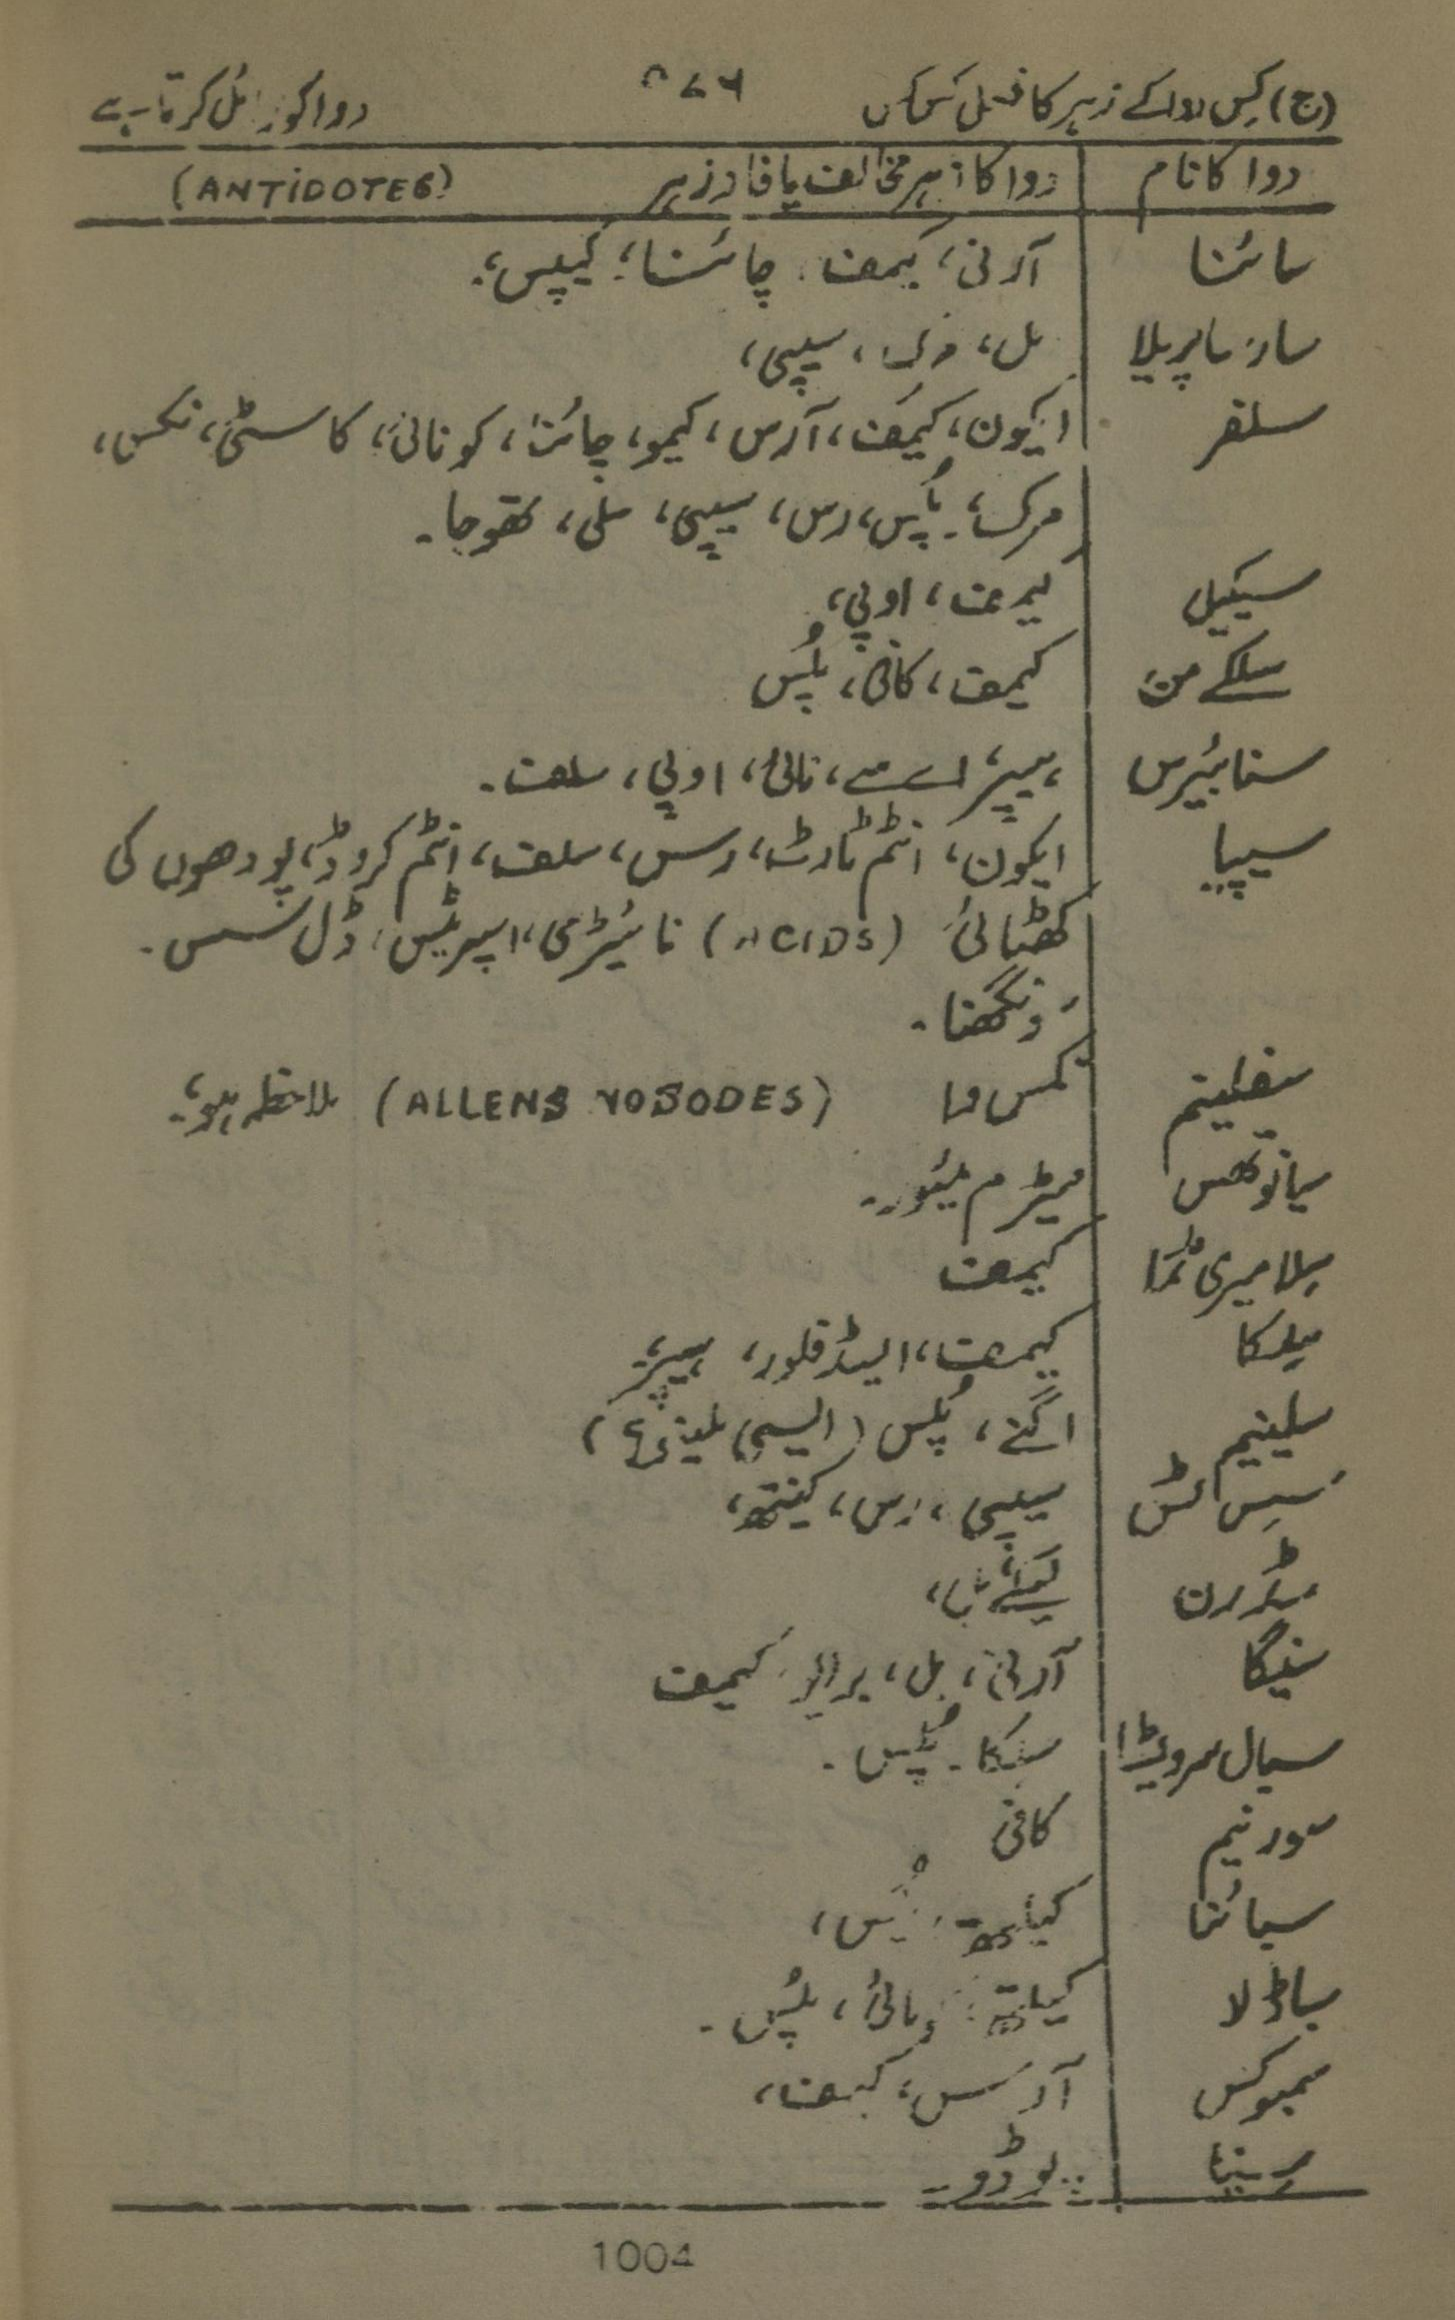 (ج) کس دوا کے زہر کا فعل کس کس دوا کو زائل کرتا ہے
دوا کا نام دوا کا زہر مخالف یا فادزہر (ANTIDOTES)
سائنا آرنی، کیمف، چائنا، کیپس،
سارساپریلا بل، مرک، سیپی،
سلفر ایکون، کیمف، آرس، کیمو، چائنا، کونائی، کاسٹی، نکس،
مرک، پُلس، رس، سیپی، سلی، تھوجا۔
سیکیل کیمف، اوپی،
کیمف، کافی، پلُس
سنابیرس ہیپر، نائی، اوپی، سلف۔
سیپیا ایکون، انٹم ٹارٹ، رس، سلف، انٹم کروڈ، پودھوں کی
کھٹائی (ACIDS) نائیٹرمی، اسپریٹس، ڈل سس۔
سونگھنا۔
سفلینم نکس وا (ALLENS NOSODES) ملاحظہ ہو،
سیانوتھس نیٹرم میُور۔
سلا میری ٹما کیمف
سلیکا کیمف، ایسڈ فلور، ہیپر،
سلینیم اگنے، پُلس
سیپی، رس، کینتھ،
سنیگا آرنی، بل، برائی، کیمف
سلیکا۔ پُلس۔
کافی
سبائنا پُلس،
سباڈلا پلُس۔
سمبوکس آرسس، کیمف،
سینا پوڈو۔
1004